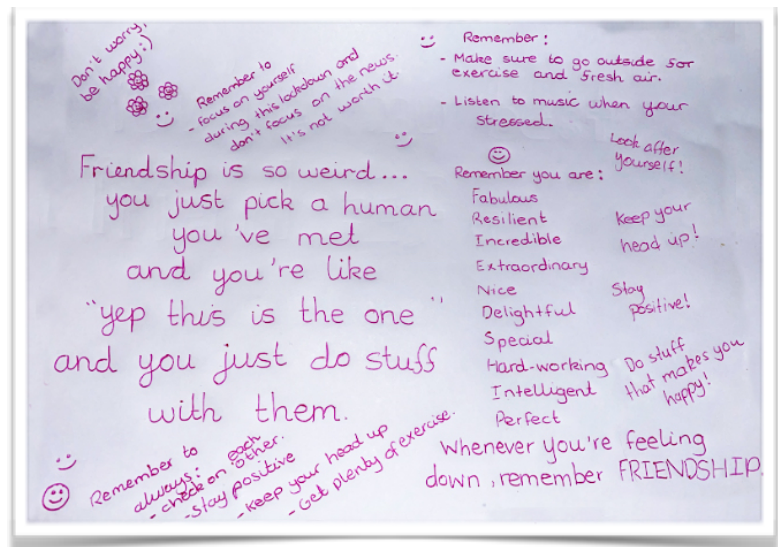 Don't worry,
be happy :)
Remember to
- focus on yourself
during this lockdown and
don't focus on the news.
It's not worth it.
Friendship is so weird...
you just pick a human
you've met
and you're like
"yep this is the one"
and you just do stuff
with them.
Remember to
always:
- check on each
other.
- Stay positive
- keep your head up
- Get plenty of exercise.
Remember:
- Make sure to go outside for
exercise and fresh air.
- Listen to music when your
stressed.
Look after
yourself!
Remember you are:
Fabulous
Resilient
Incredible
Extraordinary
Nice
Delightful
Special
Hard-working
Intelligent
Perfect
Keep your
head up!
Stay
positive!
Do stuff
that makes you
happy!
Whenever you're feeling
down, remember FRIENDSHIP.